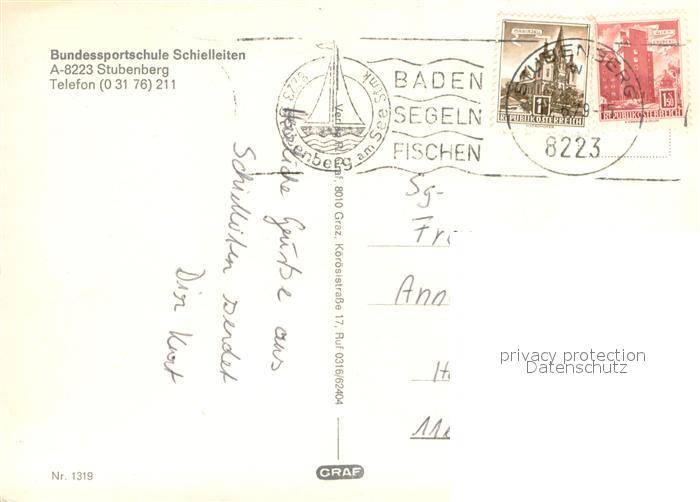 Bundessportschule Schielleiten
A-8223 Stubenberg
Telefon (0 31 76) 211
8223
Stubenberg am See Stmk
BADEN
SEGELN
FISCHEN
REPUBLIK ÖSTERREICH
REPUBLIK ÖSTERREICH
1.50
STUBENBERG
8223
Herzliche Grüße aus
Schielleiten sendet
Dir Kurt
Graf, 8010 Graz, Körösistraße 17, Ruf 0316/62404
Sg.
privacy protection
Datenschutz
GRAF
Nr. 1319